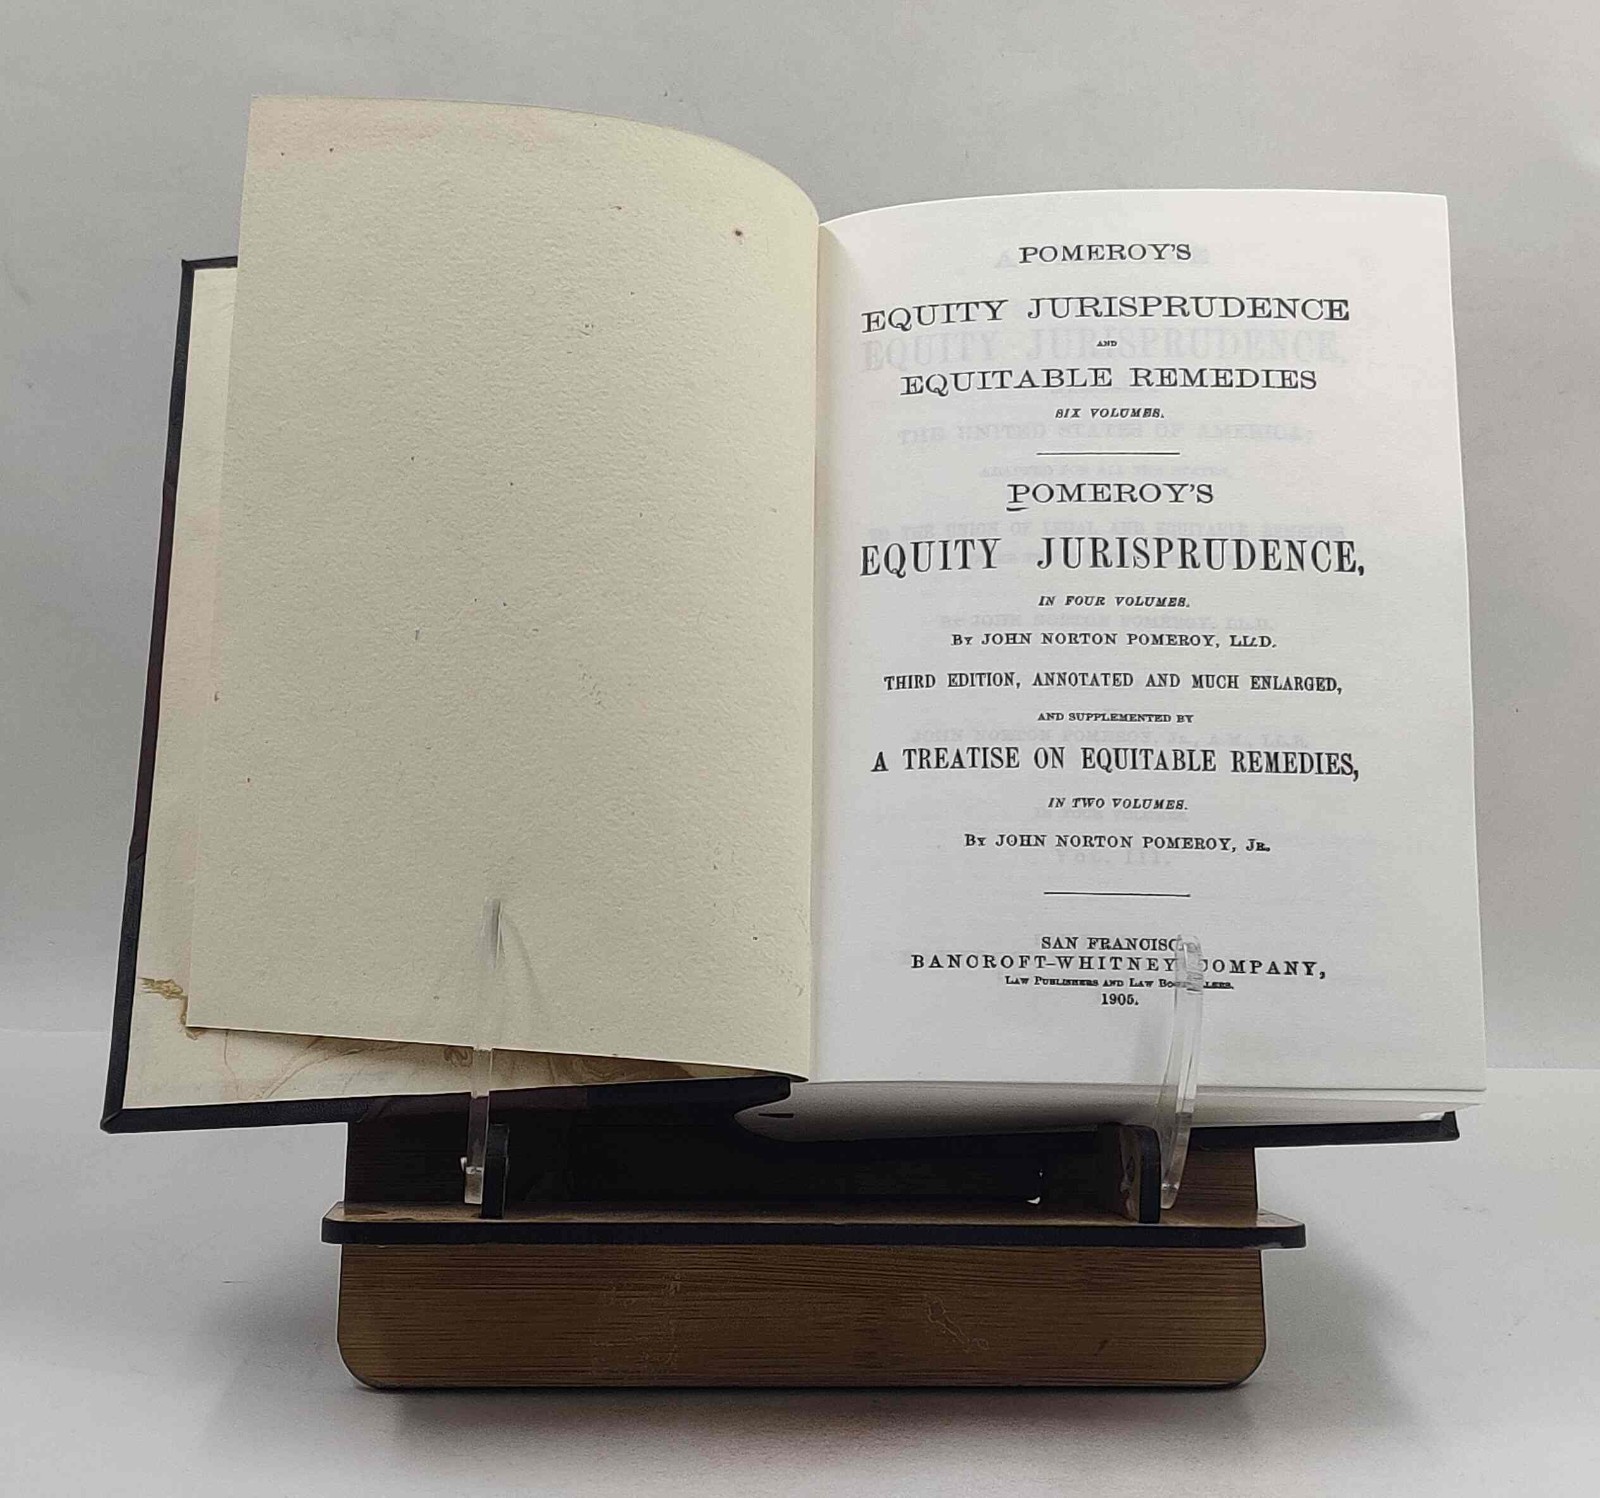 POMEROY'S
EQUITY JURISPRUDENCE
AND
EQUITABLE REMEDIES
SIX VOLUMES.
POMEROY'S
EQUITY JURISPRUDENCE,
IN FOUR VOLUMES.
By JOHN NORTON POMEROY, LL.D.
THIRD EDITION, ANNOTATED AND MUCH ENLARGED,
AND SUPPLEMENTED BY
A TREATISE ON EQUITABLE REMEDIES,
IN TWO VOLUMES.
By JOHN NORTON POMEROY, Jr.
SAN FRANCISCO
BANCROFT-WHITNEY COMPANY,
Law Publishers and Law Booksellers.
1905.